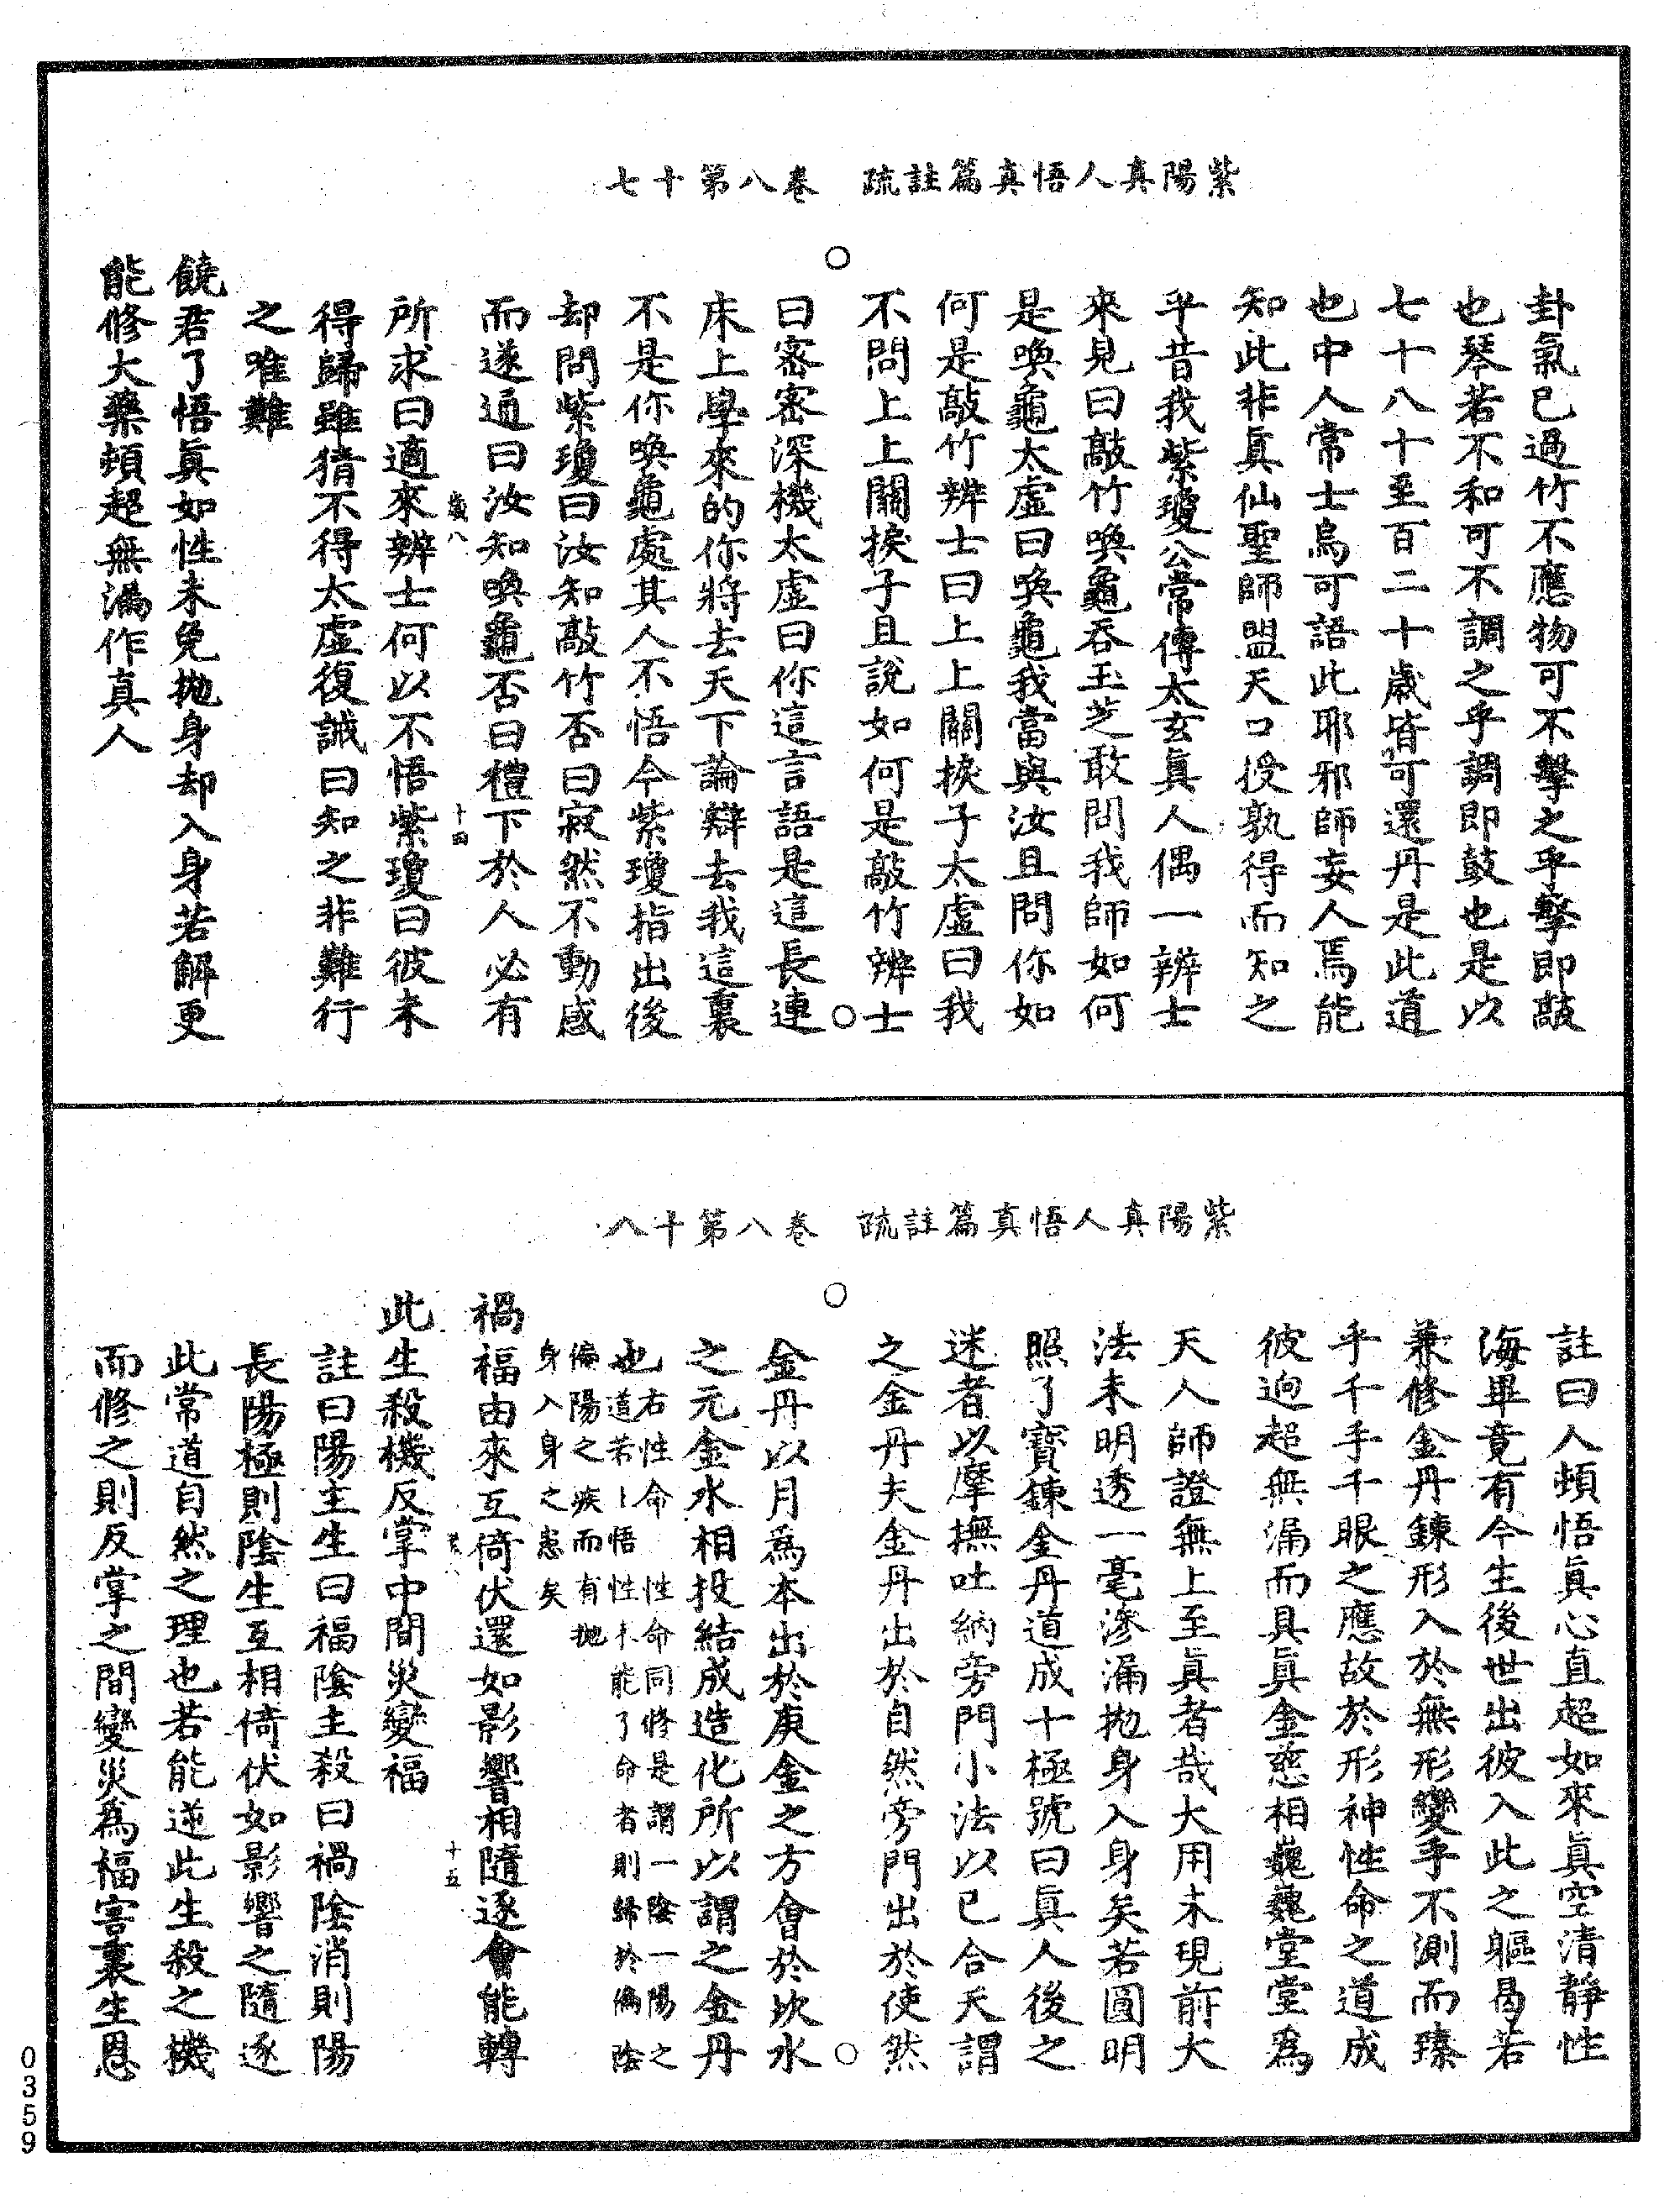 紫陽真人悟真篇註疏 卷八第十七
卦氣已過竹不應物可不擊之乎擊即敲
也琴若不和可不調之乎調即鼓也是以
七十八十至百二十歲皆可還丹是此道
也中人常士烏可語此耶邪師妄人焉能
知此非眞仙聖師盟天口授孰得而知之
乎昔我紫瓊公常傳太玄眞人偶一辨士
來見曰敲竹喚龜吞玉芝敢問我師如何
是喚龜太虛曰喚龜我當與汝且問你如
何是敲竹辨士曰上上關捩子太虛曰我
不問上上關捩子且說如何是敲竹辨士
曰密密深機太虛曰你這言語是這長連
床上學來的你將去天下論辯去我這裏
不是你喚龜處其人不悟今紫瓊指出後
却問紫瓊曰汝知敲竹否曰寂然不動感
而遂通曰汝知喚龜否曰禮下於人必有
歲八 十四
所求曰適來辨士何以不悟紫瓊曰彼未
得歸雖猜不得太虛復誡曰知之非難行
之唯難
饒君了悟眞如性未免拋身却入身若解更
能修大藥頓超無漏作真人
紫陽真人悟真篇註疏 卷八第十八
註曰人頓悟眞心直超如來眞空清靜性
海畢竟有今生後世出彼入此之軀曷若
兼修金丹鍊形入於無形變乎不測而臻
乎千手千眼之應故於形神性命之道成
彼逈超無漏而具眞金慈相巍巍堂堂爲
天人師證無上至眞者哉大用未現前大
法未明透一毫滲漏拋身入身矣若圓明
照了寶鍊金丹道成十極號曰眞人後之
迷者以摩撫吐納旁門小法以已合天謂
之金丹夫金丹出於自然旁門出於使然
金丹以月爲本出於庚金之方會於坎水
之元金水相投結成造化所以謂之金丹
也右性命性命同修是謂一陰一陽之
道若 悟性不能了命者則歸於偏陰
偏陽之疾而有拋
身入身之患矣
禍福由來互倚伏還如影響相隨逐會能轉
歲八 十五
此生殺機反掌中間災變福
註曰陽主生曰福陰主殺曰禍陰消則陽
長陽極則陰生互相倚伏如影響之隨逐
此常道自然之理也若能逆此生殺之機
而修之則反掌之間變災爲福害裏生恩
0359